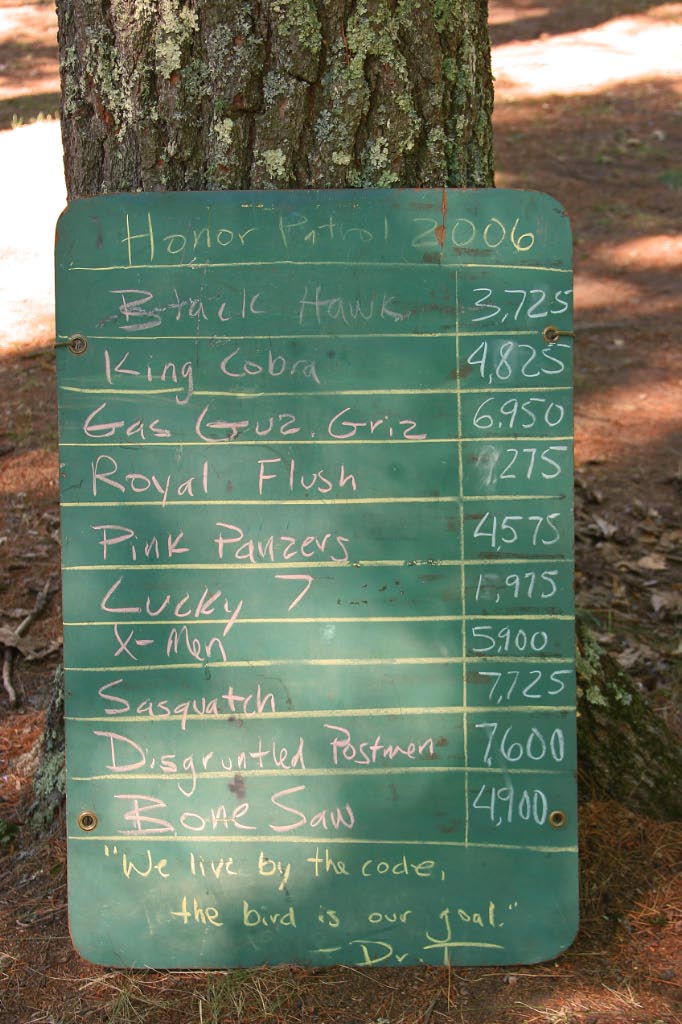 Honor Patrol 2006
Black Hawk 3,725
King Cobra 4,825
Gas Guz. Griz 6,950
Royal Flush 275
Pink Panzers 4,575
Lucky 7 1,975
X-Men 5,900
Sasquatch 7,725
Disgruntled Postmen 7,600
Bone Saw 4,900
"We live by the code,
the bird is our goal."
- Dr. T